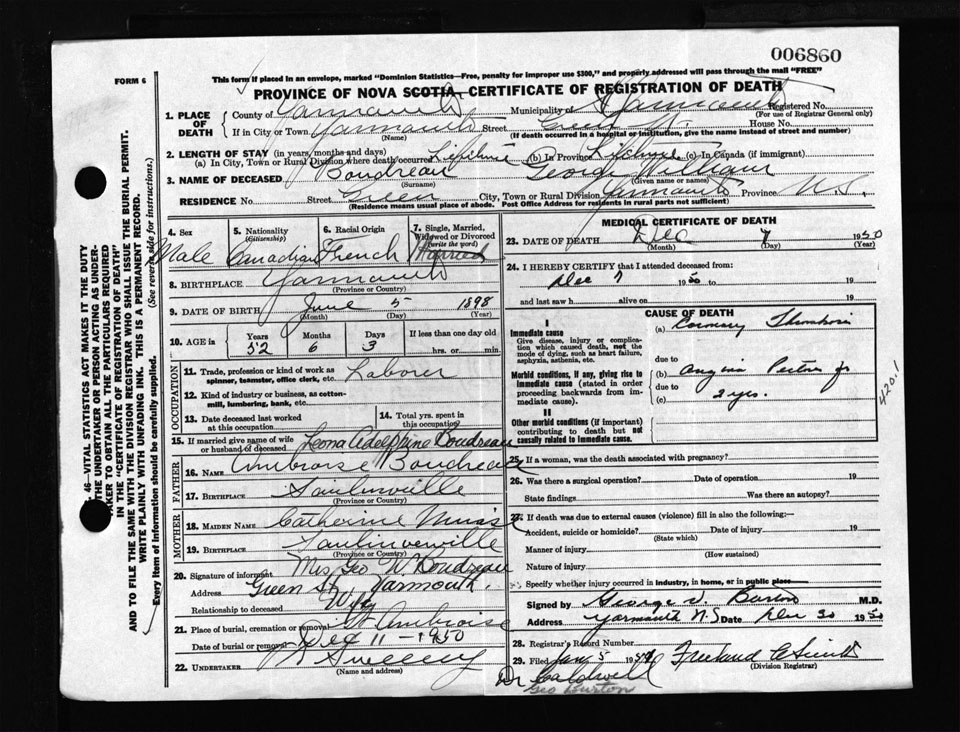 006860
FORM 6
This form if placed in an envelope, marked "Dominion Statistics—Free, penalty for improper use $300," and properly addressed will pass through the mail "FREE"
PROVINCE OF NOVA SCOTIA—CERTIFICATE OF REGISTRATION OF DEATH
1. PLACE OF DEATH { County of Yarmouth Municipality of Yarmouth Registered No.
(For use of Registrar General only)
If in City or Town Yarmouth Street Green St. House No.
(Name) (If death occurred in a hospital or institution, give the name instead of street and number)
2. LENGTH OF STAY (in years, months and days)
(a) In City, Town or Rural Division where death occurred Lifetime (b) In Province Lifetime (c) In Canada (if immigrant)
3. NAME OF DECEASED Boudreau George William
(Surname) (Given name or names)
RESIDENCE No. Street Green City, Town or Rural Division Yarmouth Province N.S.
(Residence means usual place of abode. Post Office Address for residents in rural parts not sufficient)
4. Sex Male
5. Nationality (Citizenship) Canadian
6. Racial Origin French
7. Single, Married, Widowed or Divorced (write the word) Married
8. BIRTHPLACE Yarmouth
(Province or Country)
9. DATE OF BIRTH June 5 1898
(Month) (Day) (Year)
10. AGE is { Years 52 Months 6 Days 3 If less than one day old
hrs. or min.
OCCUPATION
11. Trade, profession or kind of work as spinner, teamster, office clerk, etc. Laborer
12. Kind of industry or business, as cotton-mill, lumbering, bank, etc.
13. Date deceased last worked at this occupation
14. Total yrs. spent in this occupation
15. If married give name of wife or husband of deceased Leona Adelphine Boudreau
FATHER
16. NAME Ambroise Boudreau
17. BIRTHPLACE Saulnierville
(Province or Country)
MOTHER
18. MAIDEN NAME Catherine Muise
19. BIRTHPLACE Saulnierville
(Province or Country)
20. Signature of informant Mrs Geo W Boudreau
Address Green St. Yarmouth.
Relationship to deceased Wife
21. Place of burial, cremation or removal St Ambroise
Date of burial or removal Dec 11 – 1950
22. UNDERTAKER Sweeny
(Name and address)
MEDICAL CERTIFICATE OF DEATH
23. DATE OF DEATH Dec 7 1950
(Month) (Day) (Year)
24. I HEREBY CERTIFY that I attended deceased from
Dec 7 1950 to 19
and last saw h alive on 19
CAUSE OF DEATH
I
Immediate cause
Give disease, injury or complication which caused death, not the mode of dying, such as heart failure, asphyxia, asthenia, etc.
(a) Coronary Thrombosis
due to
Morbid conditions, if any, giving rise to immediate cause (stated in order proceeding backwards from immediate cause).
(b) Angina Pectoris
due to
(c) 2 yrs.
420.1
II
Other morbid conditions (if important) contributing to death but not causally related to immediate cause.
25. If a woman, was the death associated with pregnancy?
26. Was there a surgical operation? Date of operation 19
State findings Was there an autopsy?
27. If death was due to external causes (violence) fill in also the following:—
Accident, suicide or homicide? Date of injury 19
(State which)
Manner of injury
(How sustained)
Nature of injury
Specify whether injury occurred in industry, in home, or in public place
Signed by George V. Burton M.D.
Address Yarmouth N.S Date Dec 30 1950
28. Registrar's Record Number
29. Filed Jan 5 1951 Freeland E Smith
(Division Registrar)
Dr Caldwell
Geo Burton
46—VITAL STATISTICS ACT MAKES IT THE DUTY
THE UNDERTAKER OR PERSON ACTING AS UNDER-
TAKER TO OBTAIN ALL THE PARTICULARS REQUIRED
IN THE "CERTIFICATE OF REGISTRATION OF DEATH"
AND TO FILE THE SAME WITH THE DIVISION REGISTRAR WHO SHALL ISSUE THE BURIAL PERMIT.
WRITE PLAINLY WITH UNFADING INK. THIS IS A PERMANENT RECORD.
Every item of information should be carefully supplied. (See reverse side for instructions.)